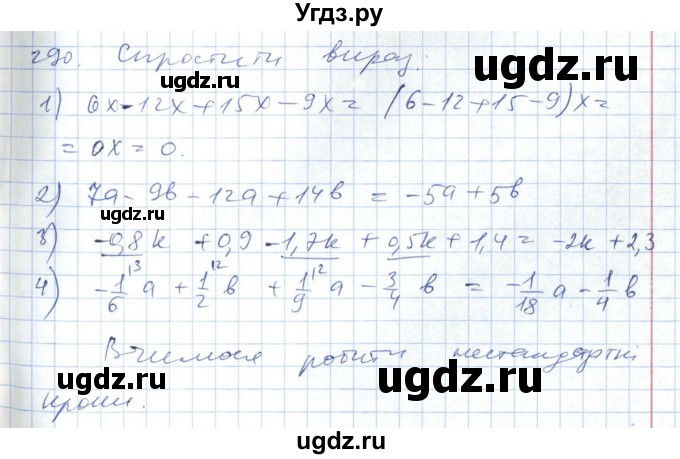 Угдз.ру
290. Спростити вираз.
ugdz.ru ugdz.ru
1) 6x-12x+15x-9x= (6-12+15-9)x=
= 0x = 0.
ugdz.ru
2) 7a-9b-12a+14b = -5a+5b
ugdz.ru ugdz.ru
3) -0,8k +0,9 -1,7k +0,5k+1,4= -2k+2,3
4) -1/6 a + 1/2 b + 1/9 a - 3/4 b = -1/18 a - 1/4 b
ugdz.ru
Вчимося робити нестандартні
ugdz.ru ugdz.ru
кроки.
ugdz.ru